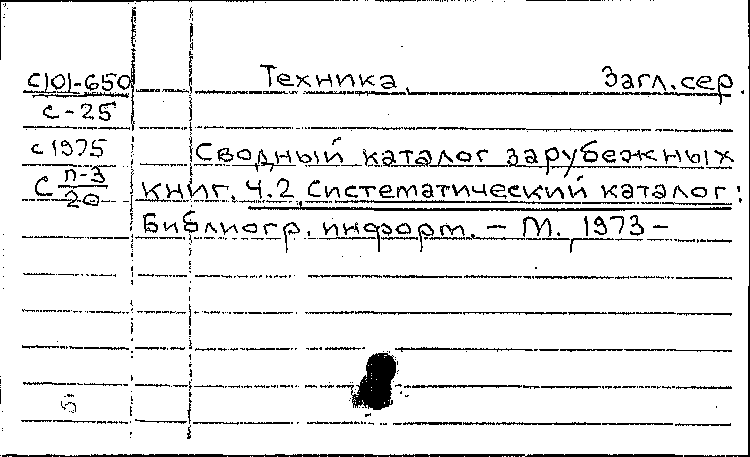 с101-650 Техника. Загл.сер.
с-25
с1975 Сводный каталог зарубежных
с п-3/20 книг. Ч.2. Систематический каталог:
Библиогр. информ. – М., 1973 –
Б